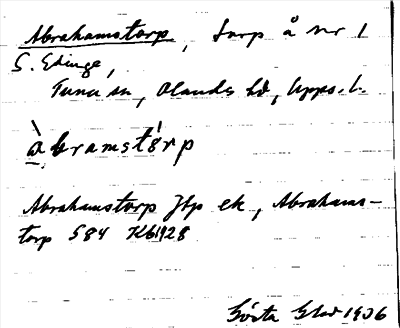 Abrahamstorp, torp å nr 1
S. Edinge,
Tuna sn, Olands hd, Upps. l.
àbramstò̱rp
Abrahamstorp Jbp ek, Abrahams-
torp S84 Kbl 928
Gösta 1906